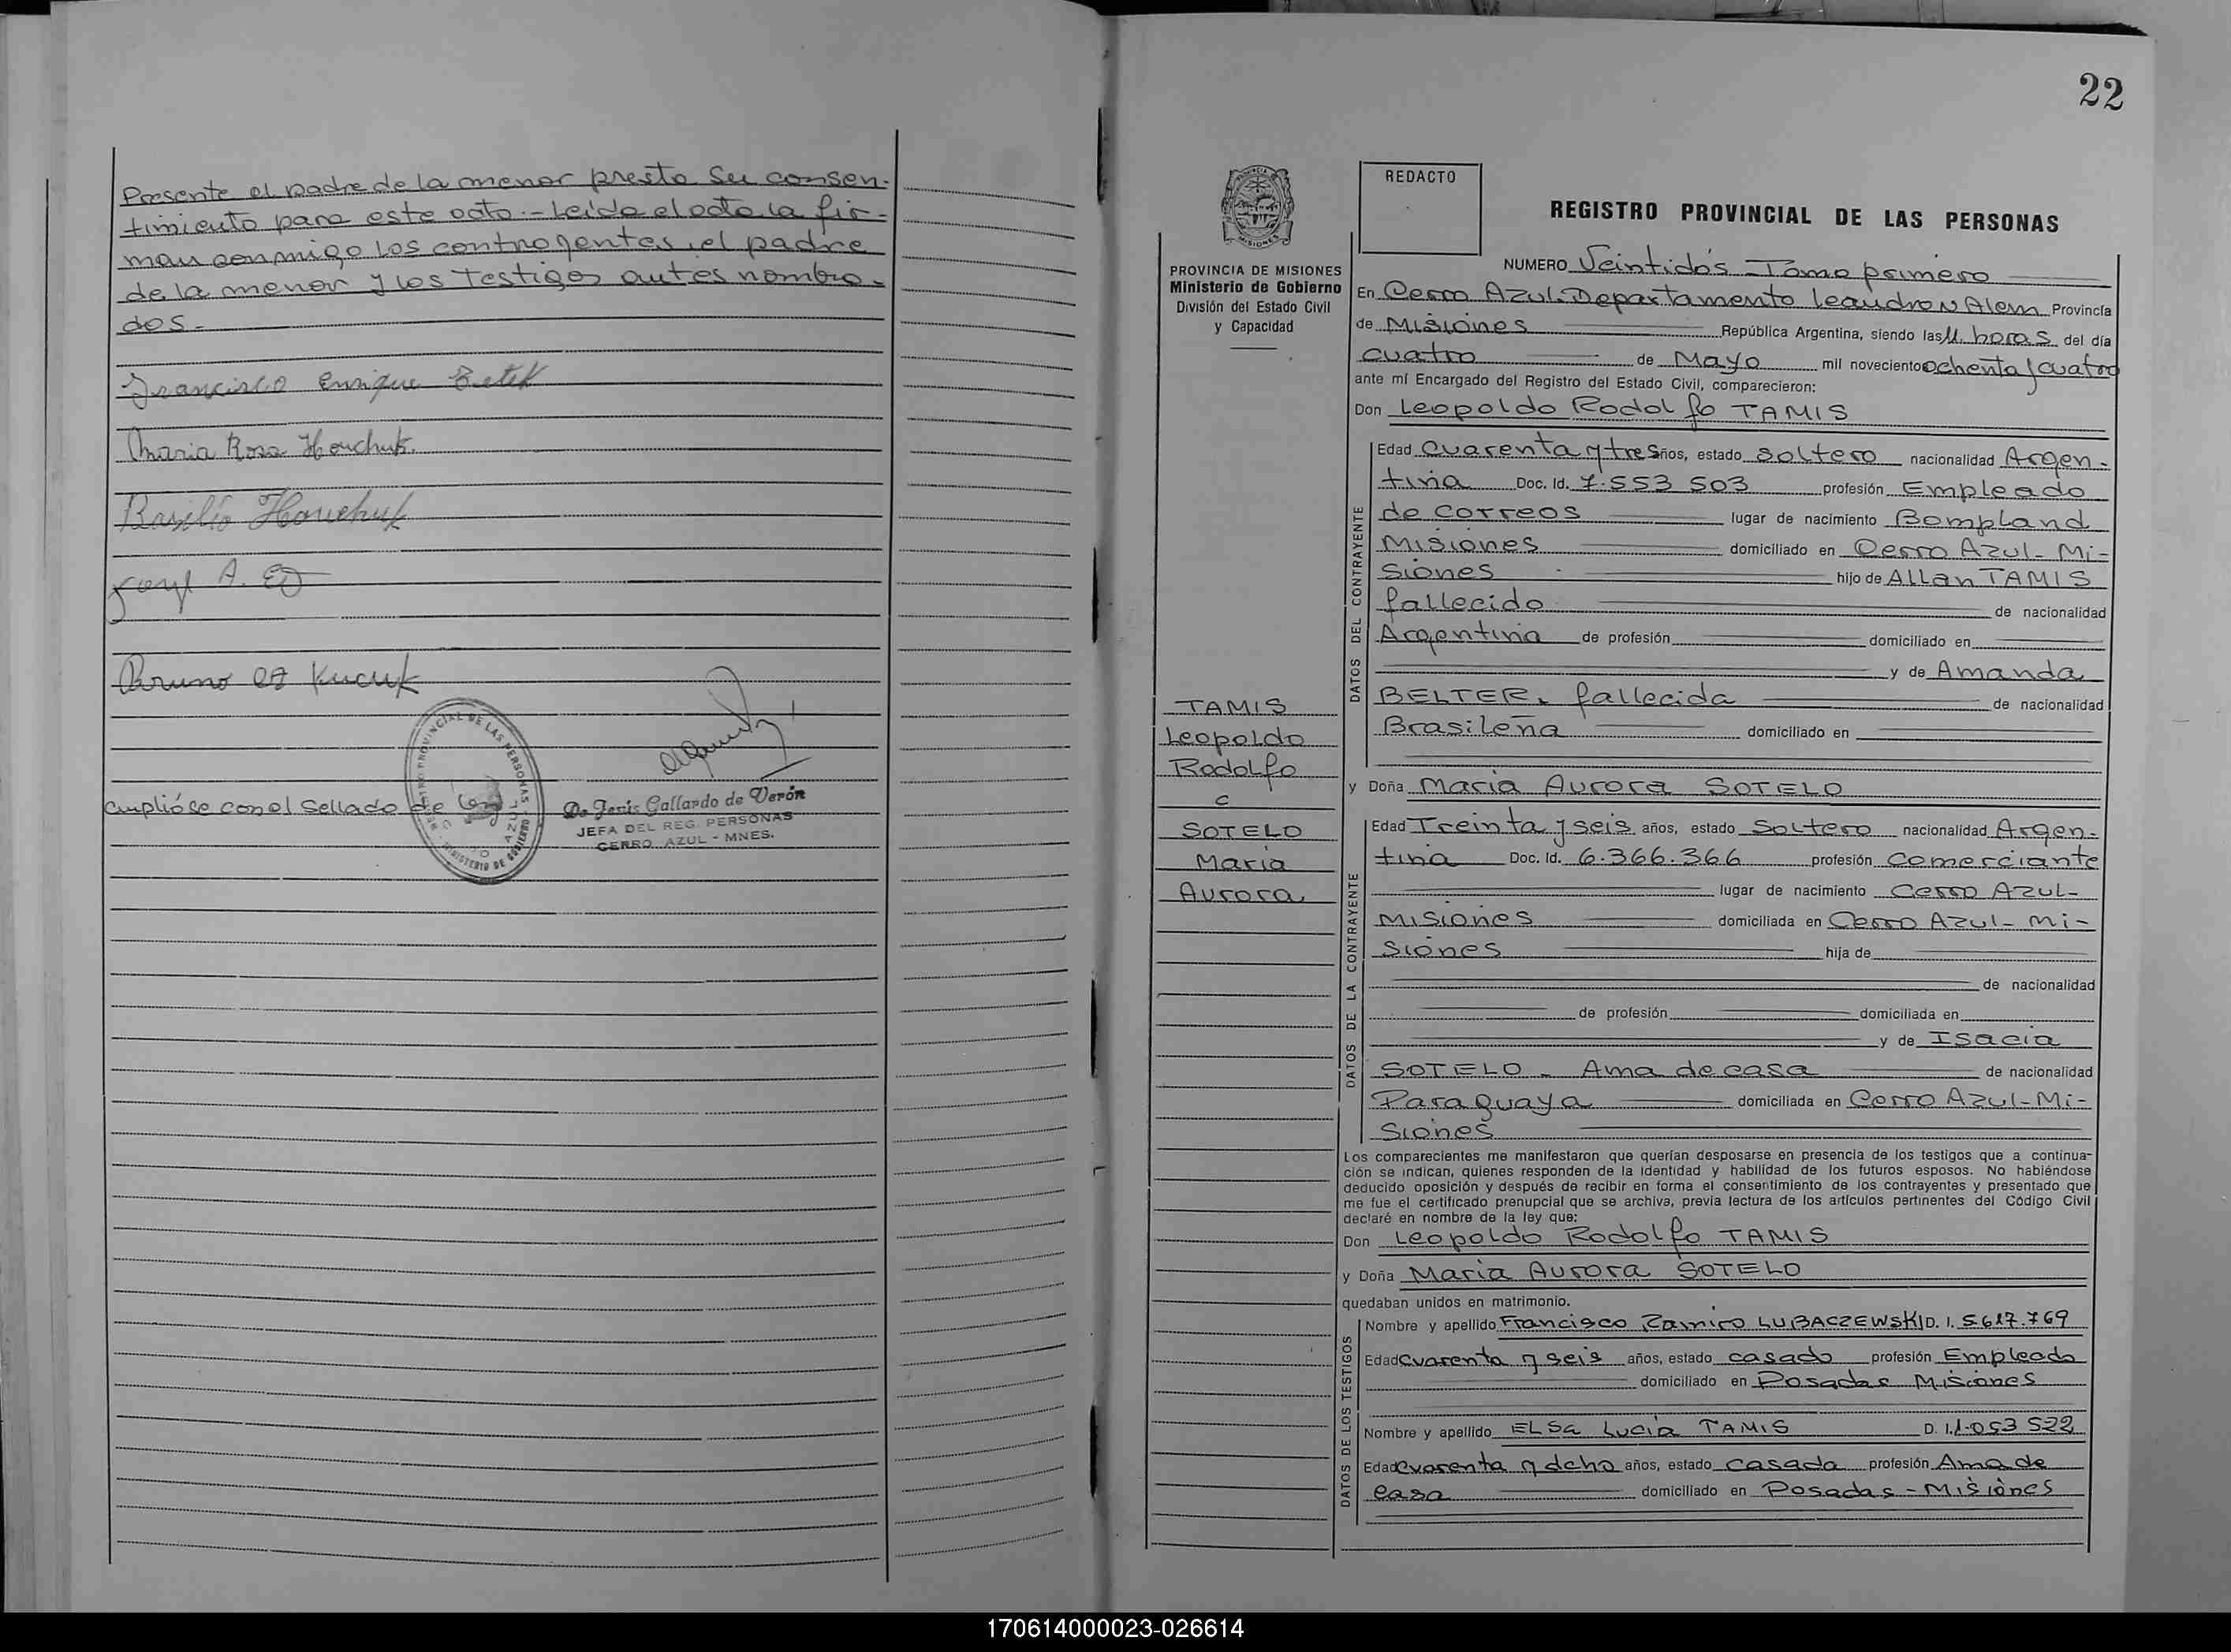 Presente el padre de la menor presta su consen-
timiento para este acto.- Leída el acta la fir-
man conmigo los contrayentes, el padre
de la menor y los testigos antes nombra-
dos-
Francisco Enrique
Maria Rosa Houchuk.
Basilio Houchuk
A.
Bruno
Cumplióse con el sellado de Ley
REGISTRO PROVINCIAL DE LAS PERSONAS
MINISTERIO DE GOBIERNO
CERRO AZUL
De Jesús Gallardo de Verón
JEFA DEL REG. PERSONAS
CERRO AZUL - MNES.
22
PROVINCIA DE
MISIONES
PROVINCIA DE MISIONES
Ministerio de Gobierno
División del Estado Civil
y Capacidad
TAMIS
Leopoldo
Rodolfo
c
SOTELO
Maria
Aurora
REDACTO
REGISTRO PROVINCIAL DE LAS PERSONAS
NUMERO Veintidós - Tomo primero
En Cerro Azul. Departamento Leandro N Alem Provincia
de Misiones República Argentina, siendo las 11. horas del día
cuatro de Mayo mil novecientos ochenta y cuatro
ante mí Encargado del Registro del Estado Civil, comparecieron:
Don Leopoldo Rodolfo TAMIS
DATOS DEL CONTRAYENTE
Edad cuarenta y tres años, estado soltero nacionalidad Argen-
tina Doc. Id. 7.553 503 profesión Empleado
de correos lugar de nacimiento Bompland
Misiones domiciliado en Cerro Azul- Mi-
siones hijo de Allan TAMIS
fallecido de nacionalidad
Argentina de profesión domiciliado en
y de Amanda
BELTER, fallecida de nacionalidad
Brasileña domiciliado en
y Doña Maria Aurora SOTELO
DATOS DE LA CONTRAYENTE
Edad Treinta y seis años, estado Soltero nacionalidad Argen-
tina Doc. Id. 6.366.366 profesión comerciante
lugar de nacimiento Cerro Azul-
Misiones domiciliada en Cerro Azul- Mi-
siones hija de
de nacionalidad
de profesión domiciliada en
y de Isacia
SOTELO - Ama de casa de nacionalidad
Paraguaya domiciliada en Cerro Azul-Mi-
siones
Los comparecientes me manifestaron que querían desposarse en presencia de los testigos que a continua-
ción se indican, quienes responden de la identidad y habilidad de los futuros esposos. No habiéndose
deducido oposición y después de recibir en forma el consentimiento de los contrayentes y presentado que
me fue el certificado prenupcial que se archiva, previa lectura de los artículos pertinentes del Código Civil
declaré en nombre de la ley que:
Don Leopoldo Rodolfo TAMIS
y Doña Maria Aurora SOTELO
quedaban unidos en matrimonio.
DATOS DE LOS TESTIGOS
Nombre y apellido Francisco Ramiro LUBACZEWSKI D. I. 5.617.769
Edad cuarenta y seis años, estado casado profesión Empleado
domiciliado en Posadas Misiones
Nombre y apellido ELSa Lucia TAMIS D. I. 1.053 522
Edad cuarenta y ocho años, estado casada profesión Ama de
casa domiciliado en Posadas - Misiones
170614000023-026614